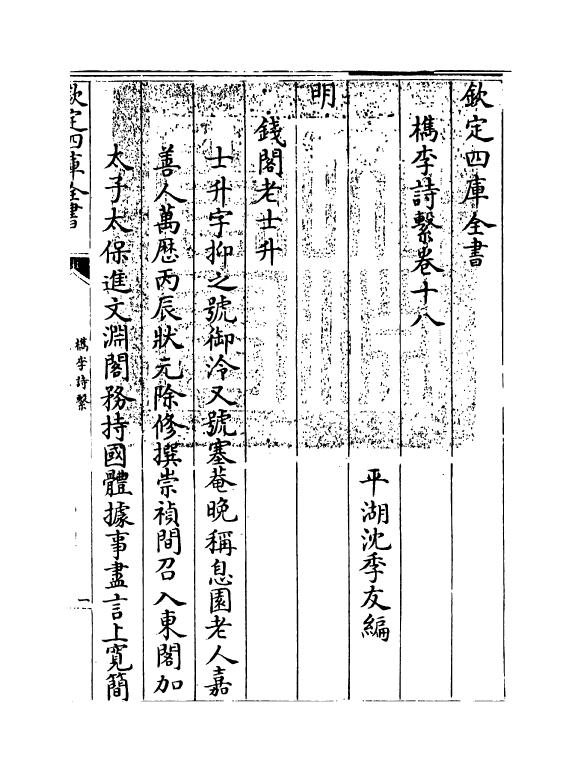 欽定四庫全書
檇李詩繫卷十八
平湖沈季友編
明
錢閣老士升
士升字抑之號御泠又號塞菴晚稱息園老人嘉
善人萬厯丙辰狀元除修撰崇禎間召入東閣加
太子太保進文淵閣務持國體據事盡言上寛簡
欽定四庫全書
檇李詩繫
一